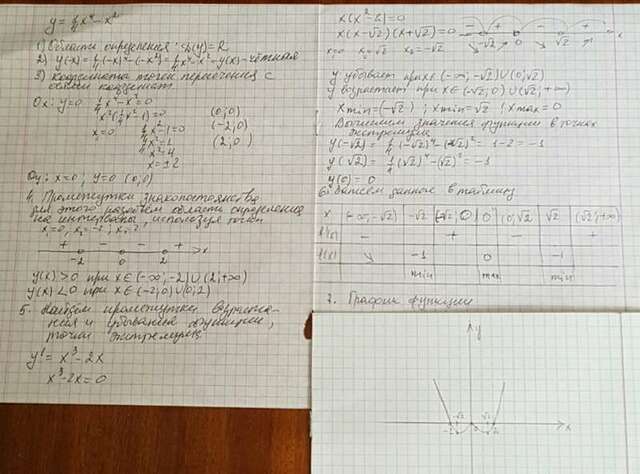 y = 1/4 x⁴ - x²
1) Область определения: D(y) = R
2) y(-x) = 1/4 (-x)⁴ - (-x)² = 1/4 x⁴ - x² = y(x) - чётная
3) Координаты точек пересечения с
осями координат.
Ox: y=0 1/4 x⁴ - x² = 0
x²(1/4 x² - 1) = 0 (0;0)
x=0 1/4 x² - 1 = 0 (-2;0)
1/4 x² = 1 (2;0)
x² = 4
x = ±2
Oy: x=0; y=0 (0;0)
4. Промежутки знакопостоянства
для этого разобьем область определения
на интервалы, используя точки
+ - - +
-2 0 2 x
y(x) > 0 при x∈(-∞;-2)∪(2;+∞)
y(x) < 0 при x∈(-2;0)∪(0;2)
5. Найдем промежутки возраста-
ния и убывания функции,
точки экстремума
y' = x³ - 2x
x³ - 2x = 0
x(x² - 2) = 0
x(x-√2)(x+√2) = 0
x₁=0 x₂=√2 x₃=-√2
- + - +
-√2 0 √2 x
y убывает при x∈(-∞;-√2)∪(0;√2)
y возрастает при x∈(-√2;0)∪(√2;+∞)
xmin=(-√2); xmin=√2; xmax=0
Вычислим значения функции в точках
экстремума
y(-√2) = 1/4 (-√2)⁴ - (-√2)² = 1-2 = -1
y(√2) = 1/4 (√2)⁴ - (√2)² = -1
y(0) = 0
6. данные в таблицу
x (-∞;-√2) -√2 (-√2;0) 0 (0;√2) √2 (√2;+∞)
- + - +
f(x) ↘ -1 0 -1
min max min
7. График функции
y
-√2 √2
x